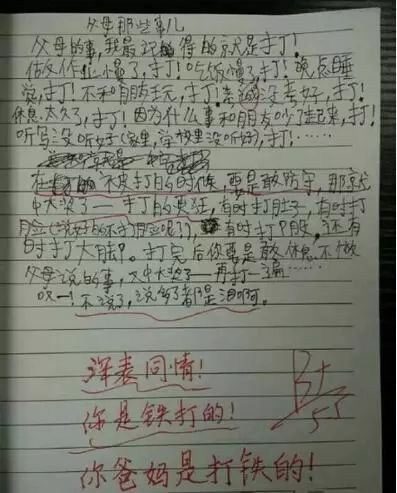 父母那些事儿
父母的事,我最记得的就是打!
做作业慢了,打!吃饭慢了,打!晚点睡
觉,打!不和朋友玩,打!考试没考好,打!
休息太久了,打!因为什么事和朋友吵了起来,打!
听写没听好(家里,学校里没听好),打!……
在被打的时候,要是敢防守,那就
中大奖了——打的更狂,有时打肚子,有时打
脸(说好的不打脸呢?),有时打股,还有
时打大腿。打完后你要是敢休息不做
父母说的事,又中大奖了——再打一遍……
哎—!不说了,说多了都是泪啊。
深表同情!
你是铁打的!
你爸妈是打铁的!
B+